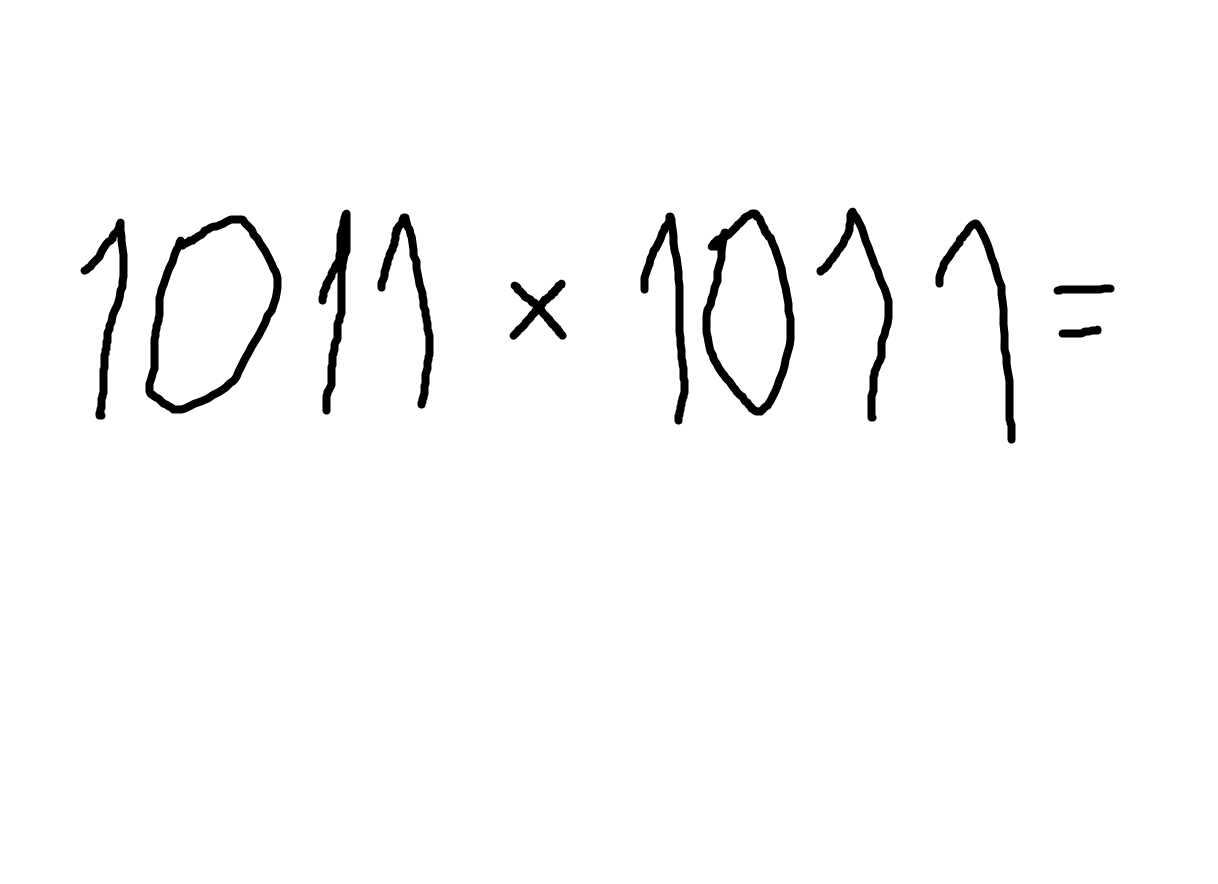 1011 × 1011 =